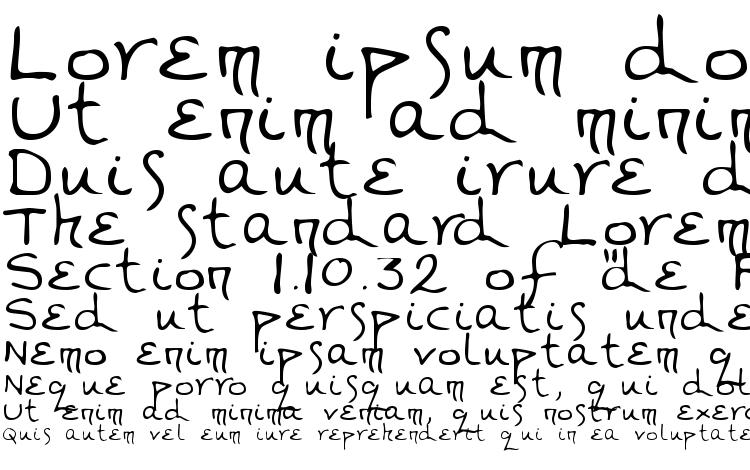 Lorem ipsum do
Ut enim ad minim
Duis aute irure d
The standard Lorem
Section 1.10.32 of "de F
Sed ut perspiciatis unde
Nemo enim ipsam voluptatem q
Neque porro quisquam est, qui dol
Ut enim ad minima veniam, quis nostrum exerc
Quis autem vel eum iure reprehenderit qui in ea voluptate